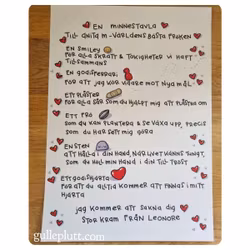 EN MINNESTAVLA
TILL ANITA M - VÄRLDENS BÄSTA FRÖKEN
EN SMILEY
FÖR ALLA SKRATT & TOKIGHETER VI HAFT
TILLSAMMANS
FÖR ATT JAG KOR VIDARE MOT NYA MÅL
ETT PLÅSTER
FÖR ALLA SÅR SOM DU HJÄLPT MIG ATT PLÅSTRA OM
ETT FRÖ
SOM DU KAN PLANTERA & SE VÄXA UPP, PRECIS
SOM DU HAR SETT MIG GÖRA
EN STEN
ATT HÅLLA I DIN HAND, NÄR LIVET KÄNNS TUNGT,
SOM DU HÖLL MIN HAND I DIN TILL TRÖST
ETT GODISHJÄRTA
FÖR ATT DU ALLTID KOMMER ATT FINNAS I MITT
HJÄRTA
JAG KOMMER ATT SAKNA DIG
STOR KRAM FRÅN LEONORE
gulleplutt.com